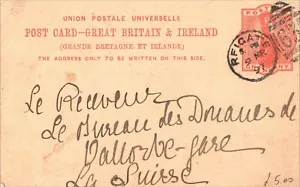 UNION POSTALE UNIVERSELLE
POST CARD—GREAT BRITAIN & IRELAND
(GRANDE BRETAGNE ET IRLANDE)
THE ADDRESS ONLY TO BE WRITTEN ON THIS SIDE.
POSTAGE
PENNY
REIGATE
Le Receveur
Le Bureau des Douanes de
Vallorbe-gare
La Suisse
£5.00